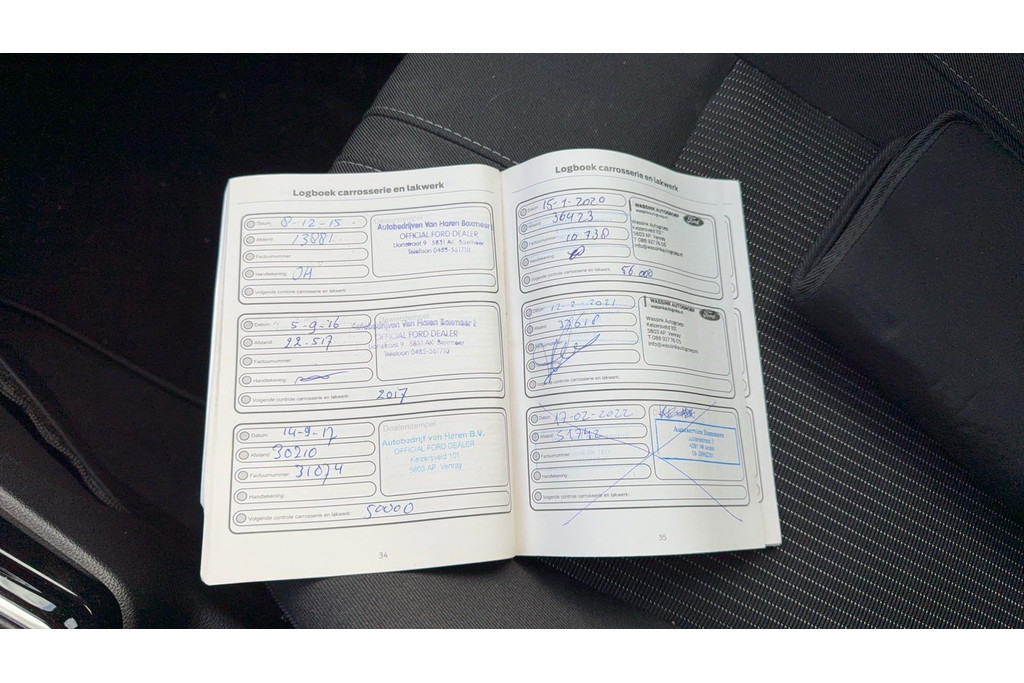 Logboek carrosserie en lakwerk
Datum: 8-12-15
Afstand: 13881
Factuurnummer:
Handtekening: OH
Volgende controle carrosserie en lakwerk:
Autobedrijven Van Haren Boxmeer
OFFICIAL FORD DEALER
5831 AK Boxmeer
Telefoon 0485-561710
Datum: 5-9-16
Afstand: 22-517
Factuurnummer:
Handtekening:
Volgende controle carrosserie en lakwerk: 2017
Autobedrijven Van Haren Boxmeer
OFFICIAL FORD DEALER
5831 AK Boxmeer
Telefoon 0485-561710
Datum: 14-9-17
Afstand: 30210
Factuurnummer: 31074
Handtekening:
Volgende controle carrosserie en lakwerk: 50000
Dealerstempel
Autobedrijf van Haren B.V.
OFFICIAL FORD DEALER
Keizersveld 101
5803 AP Venray
34
Logboek carrosserie en lakwerk
Datum: 15-1-2020
Afstand: 36423
Factuurnummer: 10.738
Handtekening:
Volgende controle carrosserie en lakwerk: 56.000
WASSINK AUTOGROEP
Ford
Wassink Autogroep
5803 AP Venray
T 088 927 76 05
Datum: 12-2-2021
Afstand:
Volgende controle carrosserie en lakwerk:
WASSINK AUTOGROEP
Ford
Wassink Autogroep
5803 AP Venray
T 088 927 76 05
Datum: 17-02-2022
Afstand: 51742
Factuurnummer:
Handtekening:
Volgende controle carrosserie en lakwerk:
35